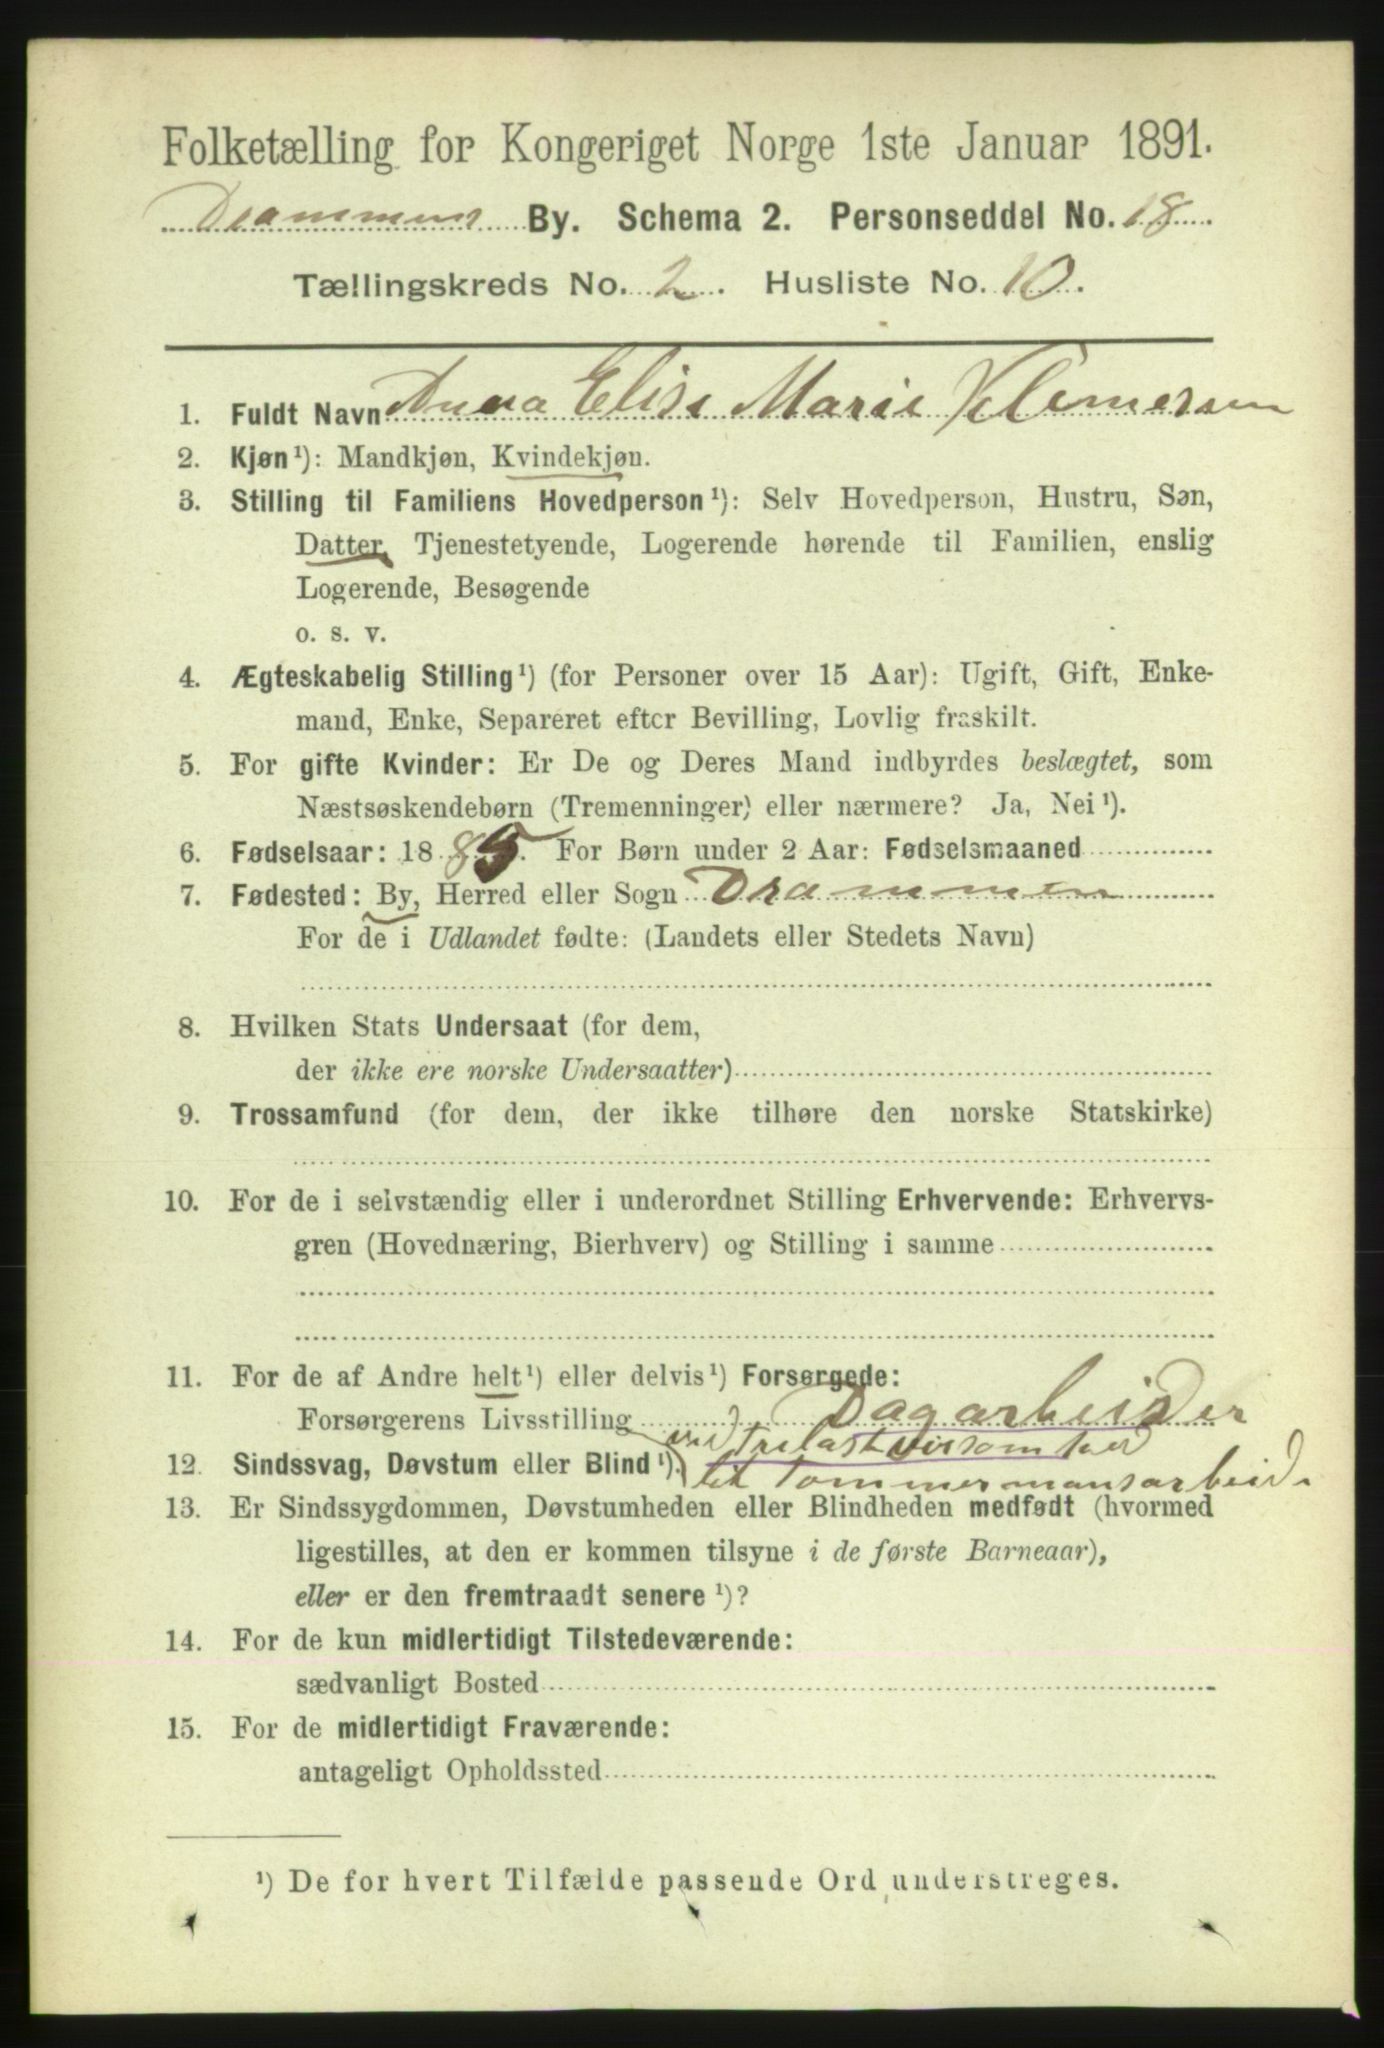 Folketælling for Kongeriget Norge 1ste Januar 1891.
Drammens By. Schema 2. Personseddel No. 18
Tællingskreds No. 2. Husliste No. 10.
1. Fuldt Navn Anna Elise Marie Klemersen
2. Kjøn¹): Mandkjøn, Kvindekjøn.
3. Stilling til Familiens Hovedperson¹): Selv Hovedperson, Hustru, Søn,
Datter, Tjenestetyende, Logerende hørende til Familien, enslig
Logerende, Besøgende
o. s. v.
4. Ægteskabelig Stilling¹) (for Personer over 15 Aar): Ugift, Gift, Enke-
mand, Enke, Separeret efter Bevilling, Lovlig fraskilt.
5. For gifte Kvinder: Er De og Deres Mand indbyrdes beslægtet, som
Næstsøskendebørn (Tremenninger) eller nærmere? Ja, Nei¹).
6. Fødselsaar: 1885. For Børn under 2 Aar: Fødselsmaaned
7. Fødested: By, Herred eller Sogn Drammen
For de i Udlandet fødte: (Landets eller Stedets Navn)
8. Hvilken Stats Undersaat (for dem,
der ikke ere norske Undersaatter)
9. Trossamfund (for dem, der ikke tilhøre den norske Statskirke)
10. For de i selvstændig eller i underordnet Stilling Erhvervende: Erhvervs-
gren (Hovednæring, Bierhverv) og Stilling i samme
11. For de af Andre helt¹) eller delvis¹) Forsørgede:
Forsørgerens Livsstilling Dagarbeider
ved Trelastvirsomhed
12. Sindssvag, Døvstum eller Blind¹).
lit Tommermansarbeid.
13. Er Sindssygdommen, Døvstumheden eller Blindheden medfødt (hvormed
ligestilles, at den er kommen tilsyne i de første Barneaar),
eller er den fremtraadt senere¹)?
14. For de kun midlertidigt Tilstedeværende:
sædvanligt Bosted
15. For de midlertidigt Fraværende:
antageligt Opholdssted
¹) De for hvert Tilfælde passende Ord understreges.